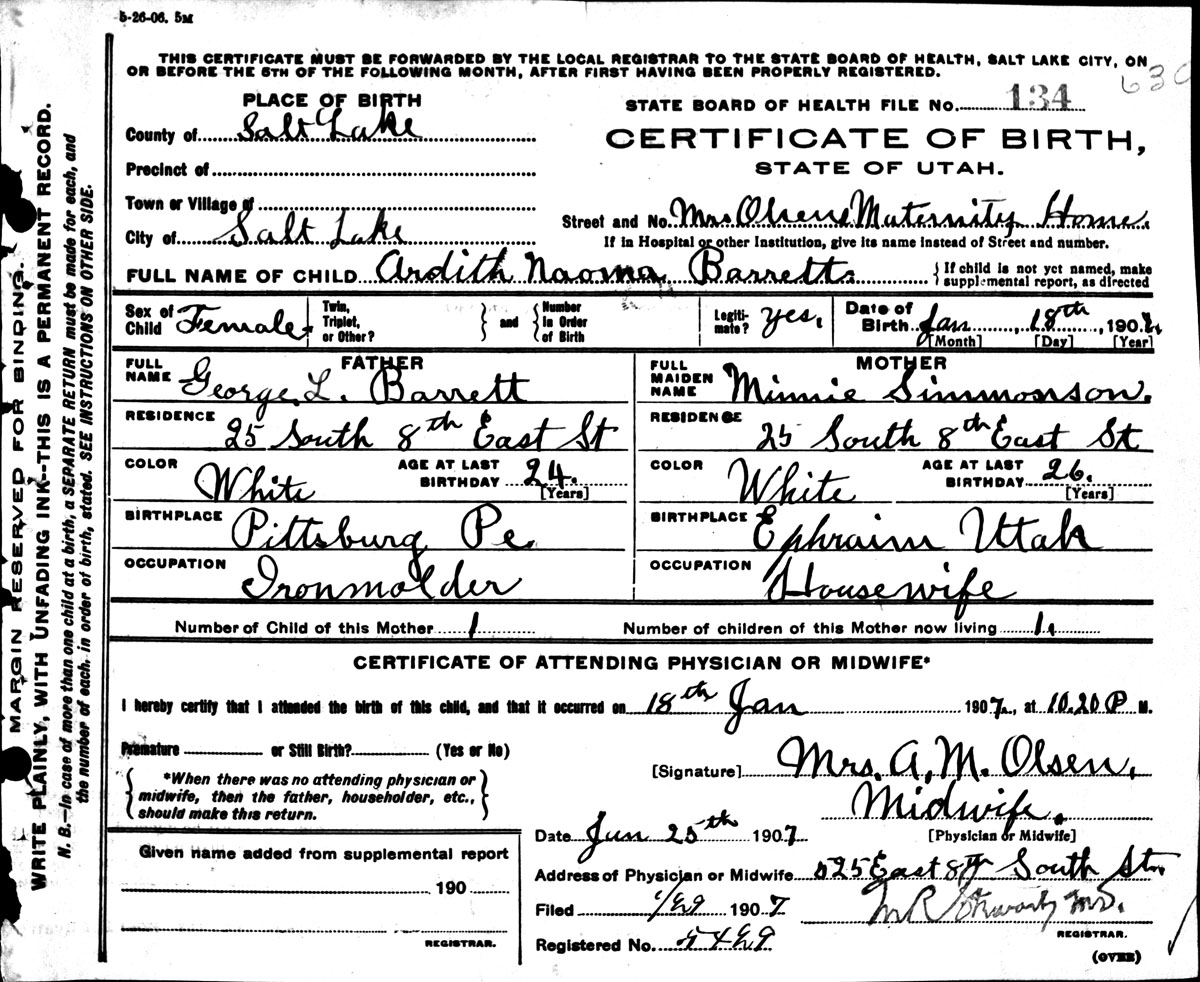 5-26-06. 5M
THIS CERTIFICATE MUST BE FORWARDED BY THE LOCAL REGISTRAR TO THE STATE BOARD OF HEALTH, SALT LAKE CITY, ON
OR BEFORE THE 5TH OF THE FOLLOWING MONTH, AFTER FIRST HAVING BEEN PROPERLY REGISTERED.
PLACE OF BIRTH
County of Salt Lake
Precinct of
Town or Village of
City of Salt Lake
STATE BOARD OF HEALTH FILE No. 134
CERTIFICATE OF BIRTH,
STATE OF UTAH.
Street and No. Mrs Olsens Maternity Home.
If in Hospital or other Institution, give its name instead of Street and number.
FULL NAME OF CHILD Ardith Naoma Barrett
If child is not yet named, make
supplemental report, as directed
Sex of Child Female.
Twin, Triplet, or Other?
and
Number in Order of Birth
Legiti-mate? yes.
Date of Birth Jan 18th, 1907.
[Month] [Day] [Year]
FATHER
FULL NAME George L. Barrett
RESIDENCE 25 South 8th East St
COLOR White AGE AT LAST BIRTHDAY 24. [Years]
BIRTHPLACE Pittsburg Pe.
OCCUPATION Ironmolder
MOTHER
FULL MAIDEN NAME Minnie Simmonson.
RESIDENCE 25 South 8th East St
COLOR White AGE AT LAST BIRTHDAY 26. [Years]
BIRTHPLACE Ephraim Utah
OCCUPATION Housewife
Number of Child of this Mother 1 Number of children of this Mother now living 1.
CERTIFICATE OF ATTENDING PHYSICIAN OR MIDWIFE*
I hereby certify that I attended the birth of this child, and that it occurred on 18th Jan 1907., at 10.20 P M.
Premature or Still Birth? (Yes or No)
*When there was no attending physician or
midwife, then the father, householder, etc.,
should make this return.
[Signature] Mrs. A. M. Olsen,
Midwife.
[Physician or Midwife]
Date Jan 25th 1907
Address of Physician or Midwife 525 East 8th South St.
Filed 1/29 1907
M.D.
REGISTRAR.
Registered No.
(OVER)
Given name added from supplemental report
190
REGISTRAR.
MARGIN RESERVED FOR BINDING.
WRITE PLAINLY, WITH UNFADING INK--THIS IS A PERMANENT RECORD.
N. B.—In case of more than one child at a birth, a SEPARATE RETURN must be made for each, and
the number of each, in order of birth, stated. SEE INSTRUCTIONS ON OTHER SIDE.